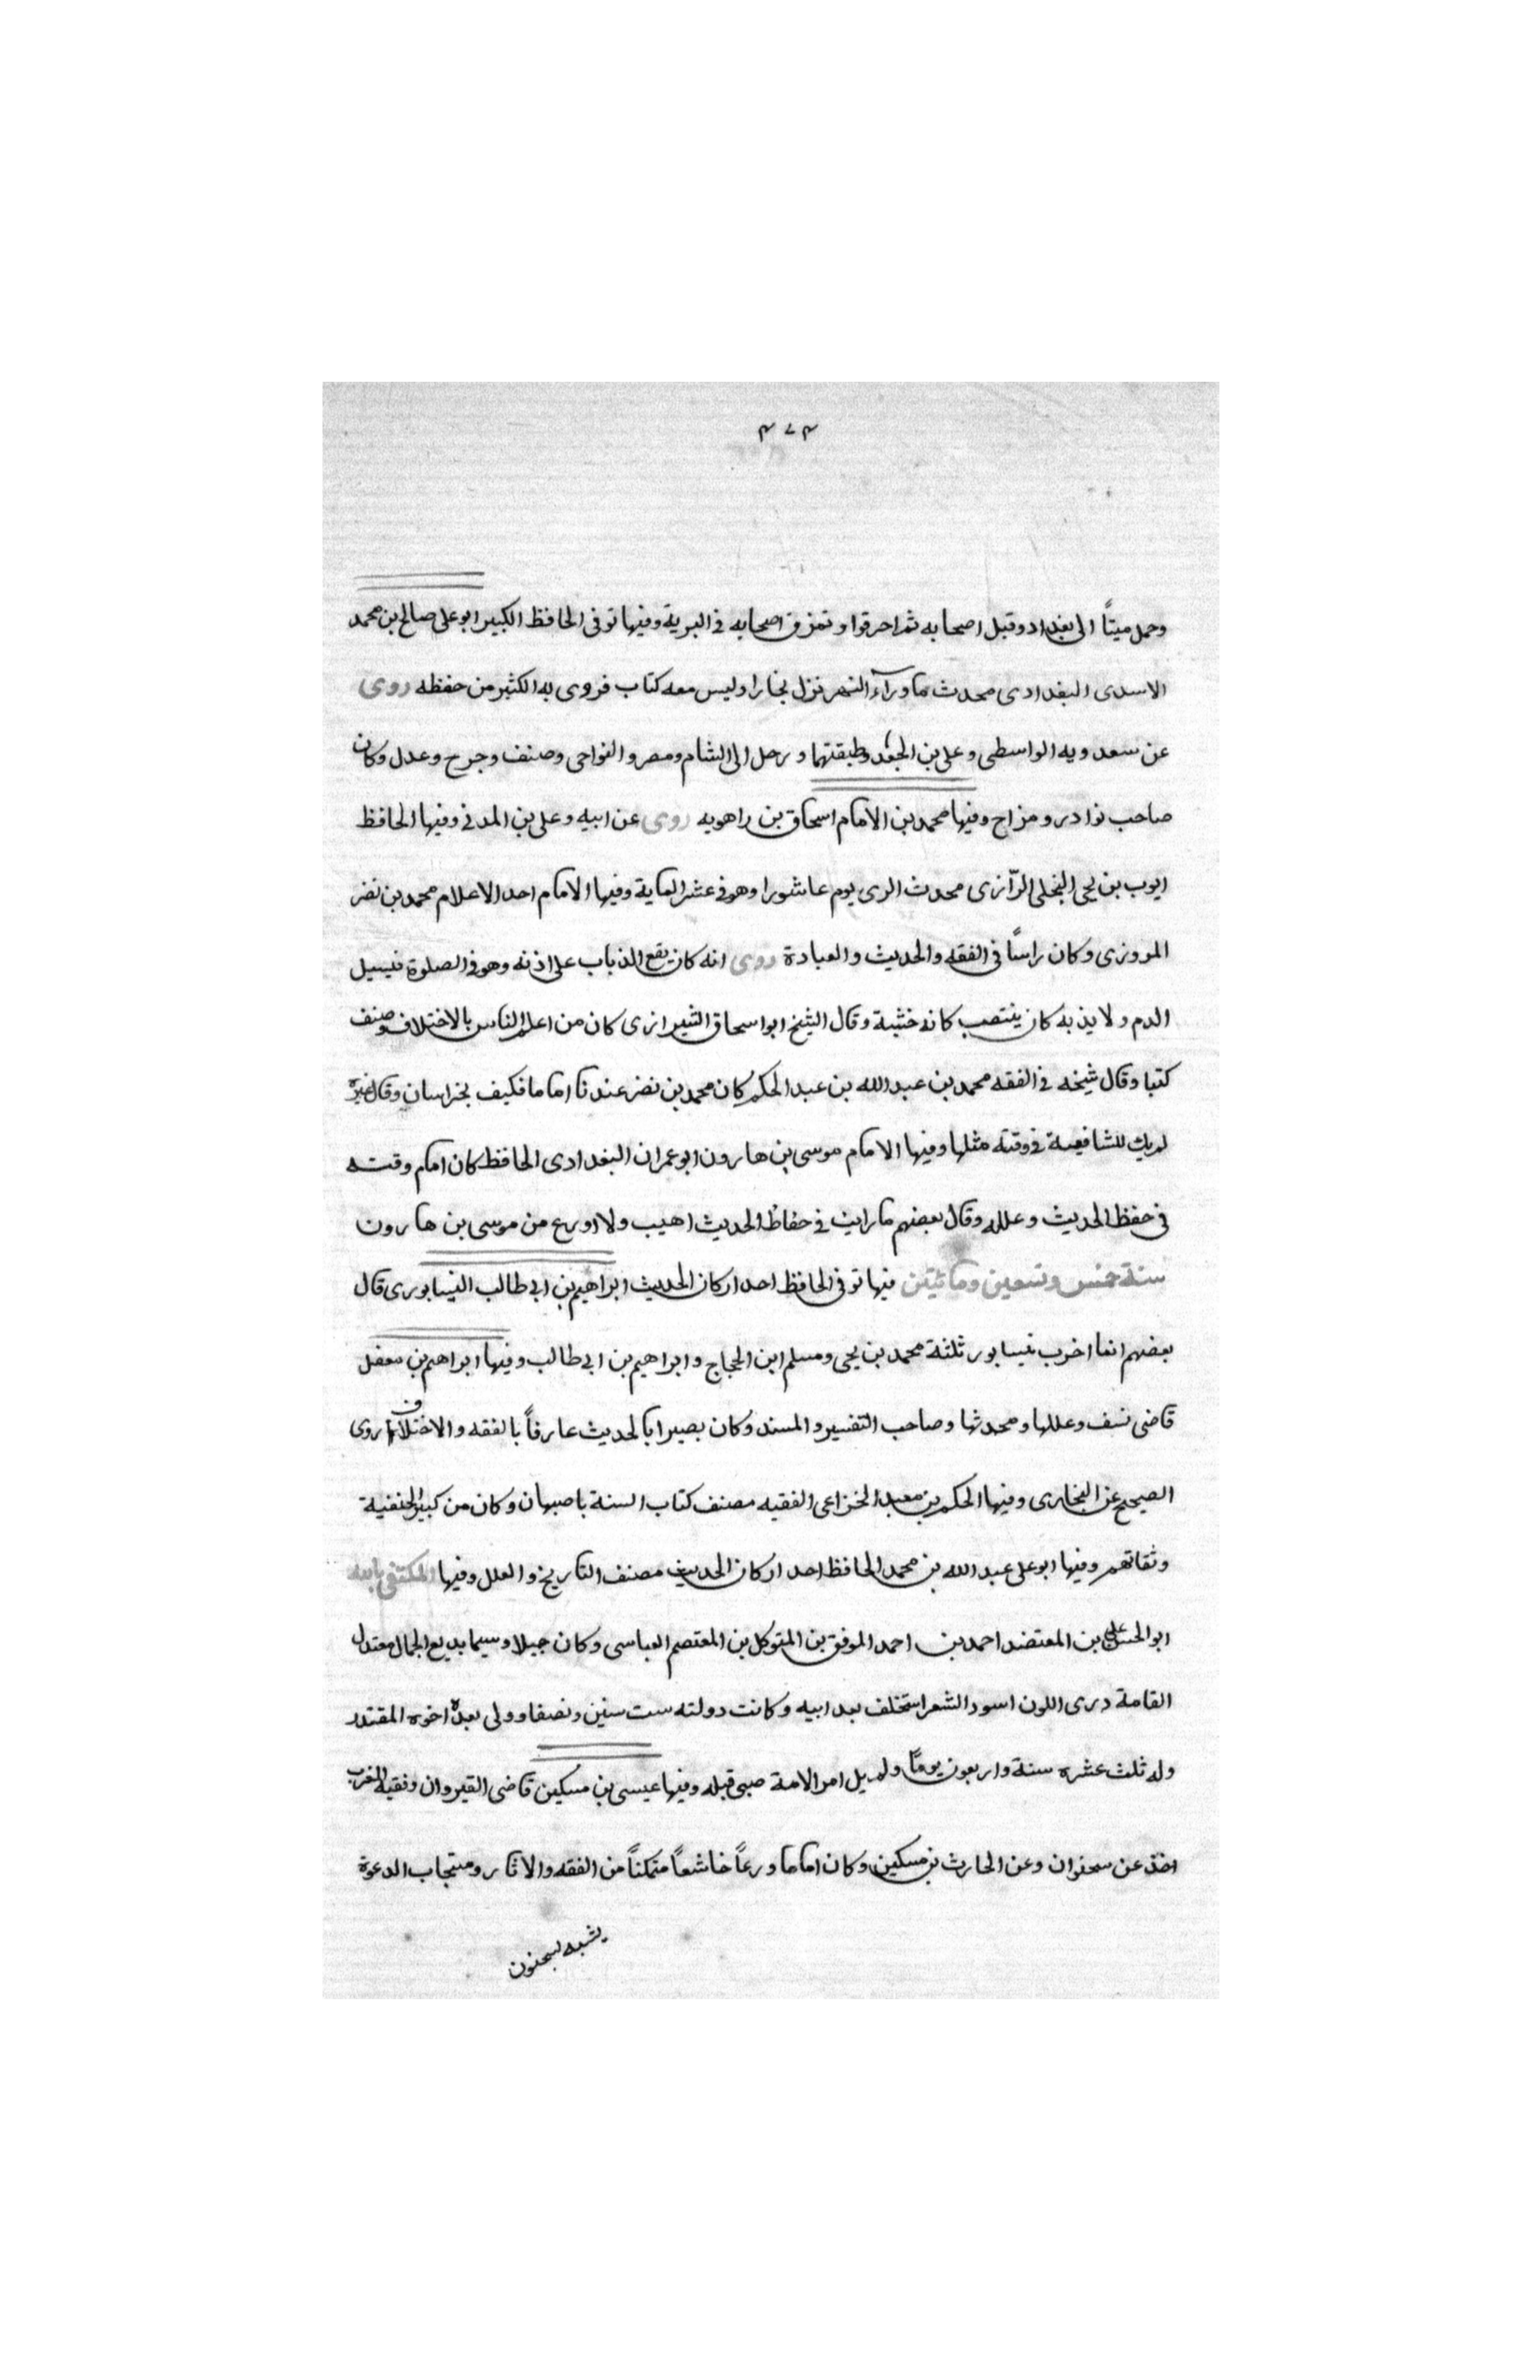 ٣٧٣
وحمل ميتاً الى بغداد وقبل اصحابه ثم احرقوا وتمزق اصحابه في البرية وفيها توفى الحافظ الكبير ابو على صالح بن محمد
الاسدى البغدادى محدث ما ورآء النهر نزل بخارا وليس معه كتاب فروى به الكثير من حفظه روى
عن سعدويه الواسطى وعلى بن الجعد وطبقتهما ورحل الى الشام ومصر والنواحى وصنف وجرح وعدل وكان
صاحب نوادر ومزاح وفيها محمد بن الامام اسحاق بن راهويه روى عن ابيه وعلى بن المدنى وفيها الحافظ
ايوب بن يحيى البجلى الرّازى محدث الرى يوم عاشورا وهو في عشر الماية وفيها الامام احد الاعلام محمد بن نضر
المروزى وكان راساً في الفقه والحديث والعبادة روى انه كان يقع الذباب على اذنه وهو في الصلوة فيسيل
الدم ولا يذبه كان ينتصب كانه خشبة وقال الشيخ ابو اسحاق الشيرازى كان من اعلم الناس بالاختلاف وصنف
كتبا وقال شيخه في الفقه محمد بن عبد الله بن عبد الحكم كان محمد بن نضر عندنا اماما فكيف بخراسان وقال غيره
لم يك للشافعية في وقته مثلها وفيها الامام موسى بن هارون ابو عمران البغدادى الحافظ كان امام وقته
في حفظ الحديث وعلله وقال بعضهم ما رايت في حفاظ الحديث اهيب ولا اورع من موسى بن هارون
سنة خمس وتسعين ومائتين فيها توفى الحافظ احد اركان الحديث ابراهيم بن ابى طالب النيسابورى قال
بعضهم انما اخرب نيسابور ثلثة محمد بن يحيى ومسلم ابن الحجاج وابراهيم بن ابى طالب وفيها ابراهيم بن معقل
قاضى نسف وعللها ومحدثها وصاحب التفسير والمسند وكان بصيرا بالحديث عارفاً بالفقه والاختلاف روى
الصحيح عن البخارى وفيها الحكم بن معبد الخزاعى الفقيه مصنف كتاب السنة باصبهان وكان من كبير الحنفية
وثقاتهم وفيها ابو على عبد الله بن محمد الحافظ احد اركان الحديث مصنف التاريخ والعلل وفيها المكتفى بالله
ابو الحسن على بن المعتضد احمد بن احمد الموفق بن المتوكل بن المعتصم العباسى وكان جميلا وسيما بديع الجمال معتدل
القامة درى اللون اسود الشعر استخلف بعد ابيه وكانت دولته ست سنين ونصفا وولى بعده اخوه المقتدر
وله ثلث عشره سنة واربعون يومًا ولم يل امر الامة صبى قبله وفيها عيسى بن مسكين قاضى القيروان وفقيه المغرب
اخذ عن سحنوان وعن الحارث بن مسكين وكان اماما ورعاً خاشعاً متمكناً من الفقه والاثار ومستجاب الدعوة
يشبه بسحنون